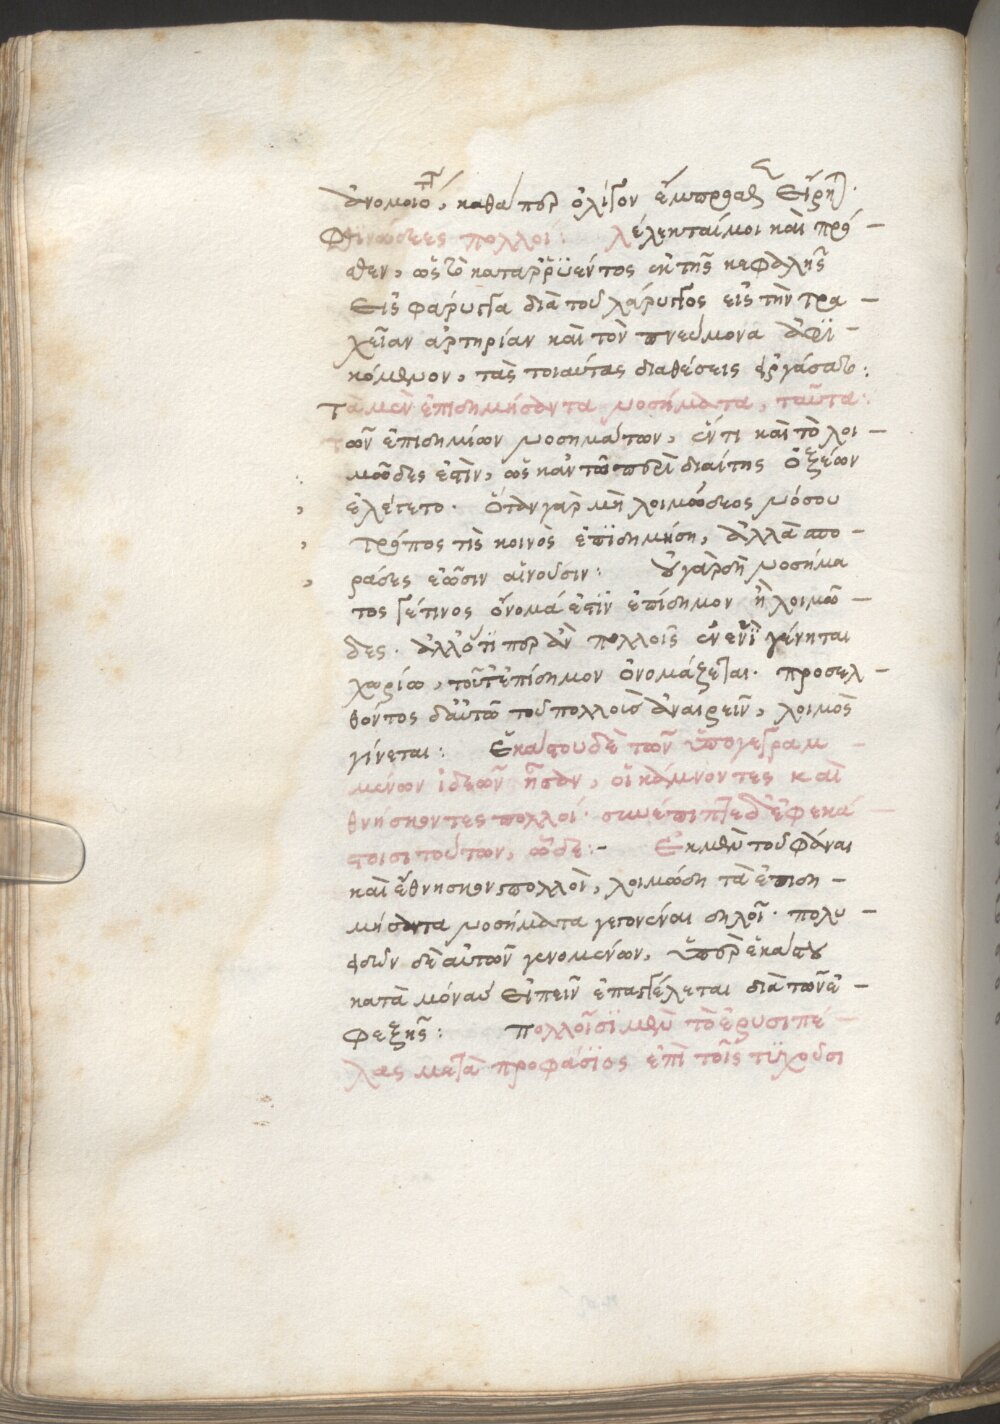 ἀνομοιότ, καθάπερ ὀλίγον ἔμπροσθεν εἴρητ.
Φθινώδεες πολλοί: Λέλεκταί μοι καὶ πρό-
σθεν, ὡς τὸ καταρρυέντος ἐκ τῆς κεφαλῆς
εἰς φάρυγγα διὰ τοῦ λάρυγγος εἰς τὴν τρα-
χεῖαν ἀρτηρίαν καὶ τὸν πνεύμονα ἀφι-
κόμενον, τὰς τοιαύτας διαθέσεις ἐργάσατο:
Τὰ μὲν ἐπιδημήσαντα νοσήματα, ταῦτα:
τῶν ἐπιδημίων νοσημάτων, ἕν τι καὶ τὸ λοι-
μῶδες ἐστὶν, ὡς κἀν τῶ περὶ διαίτης ὀξέων
ἐλέγετο. ὅταν γὰρ μὴ λοιμώδεος νόσου
τρόπος τις κοινὸς ἐπιδημήση, ἀλλὰ σπο-
ράδες ἐῶσιν αἱ νοῦσοι: οὐ γὰρ δὴ νοσήμα
τος γέ τινος ὄνομά ἐστιν ἐπίδημον ἢ λοιμῶ-
δες. ἀλλ' ὅτι περ ἂν πολλοῖς ἐν ἑνὶ γένηται
χωρίω, τοῦτ' ἐπίδημον ὀνομάζεται. προσελ-
θόντος δ' αὐτῶ τοῦ πολλοὺς ἀναιρεῖν, λοιμὸς
γίνεται: Ἑκάστου δὲ τῶν ὑπογεγραμ-
μένων ἰδεῶν ἦσαν, οἱ κάμνοντες καὶ
θνήσκοντες πολλοί. συνέπιπτε δ' ἐφ' ἑκά-
στοισι τούτων, ὧδε:- Ἐκ μὲν τοῦ φάναι
καὶ ἔθνησκον πολλοὶ, λοιμώδη τὰ ἐπιδη-
μήσαντα νοσήματα γεγονέναι δηλοῖ. πολυ-
ειδῶν δὲ αὐτῶν γενομένων, ὑπὲρ ἑκάστου
κατὰ μόνας εἰπεῖν ἐπαγγέλεται διὰ τῶν ἐ-
φεξῆς: Πολλοῖσι μὲν τὸ ἐρυσιπέ-
λας μετὰ προφάσιος ἐπὶ τοῖς τυχοῦσι